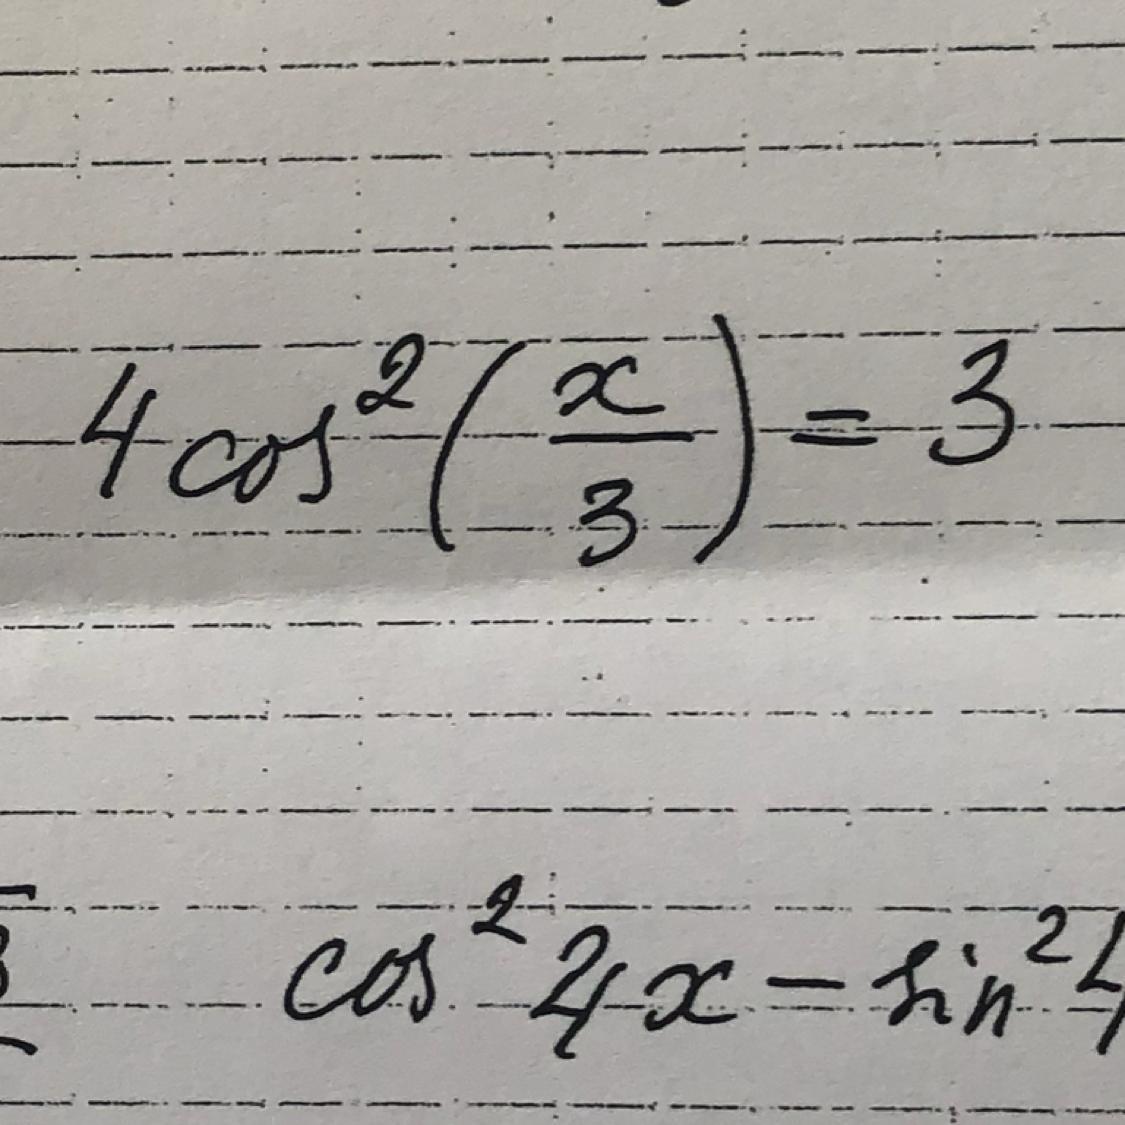 4cos²(x/3) = 3
cos² 4x - sin² 4